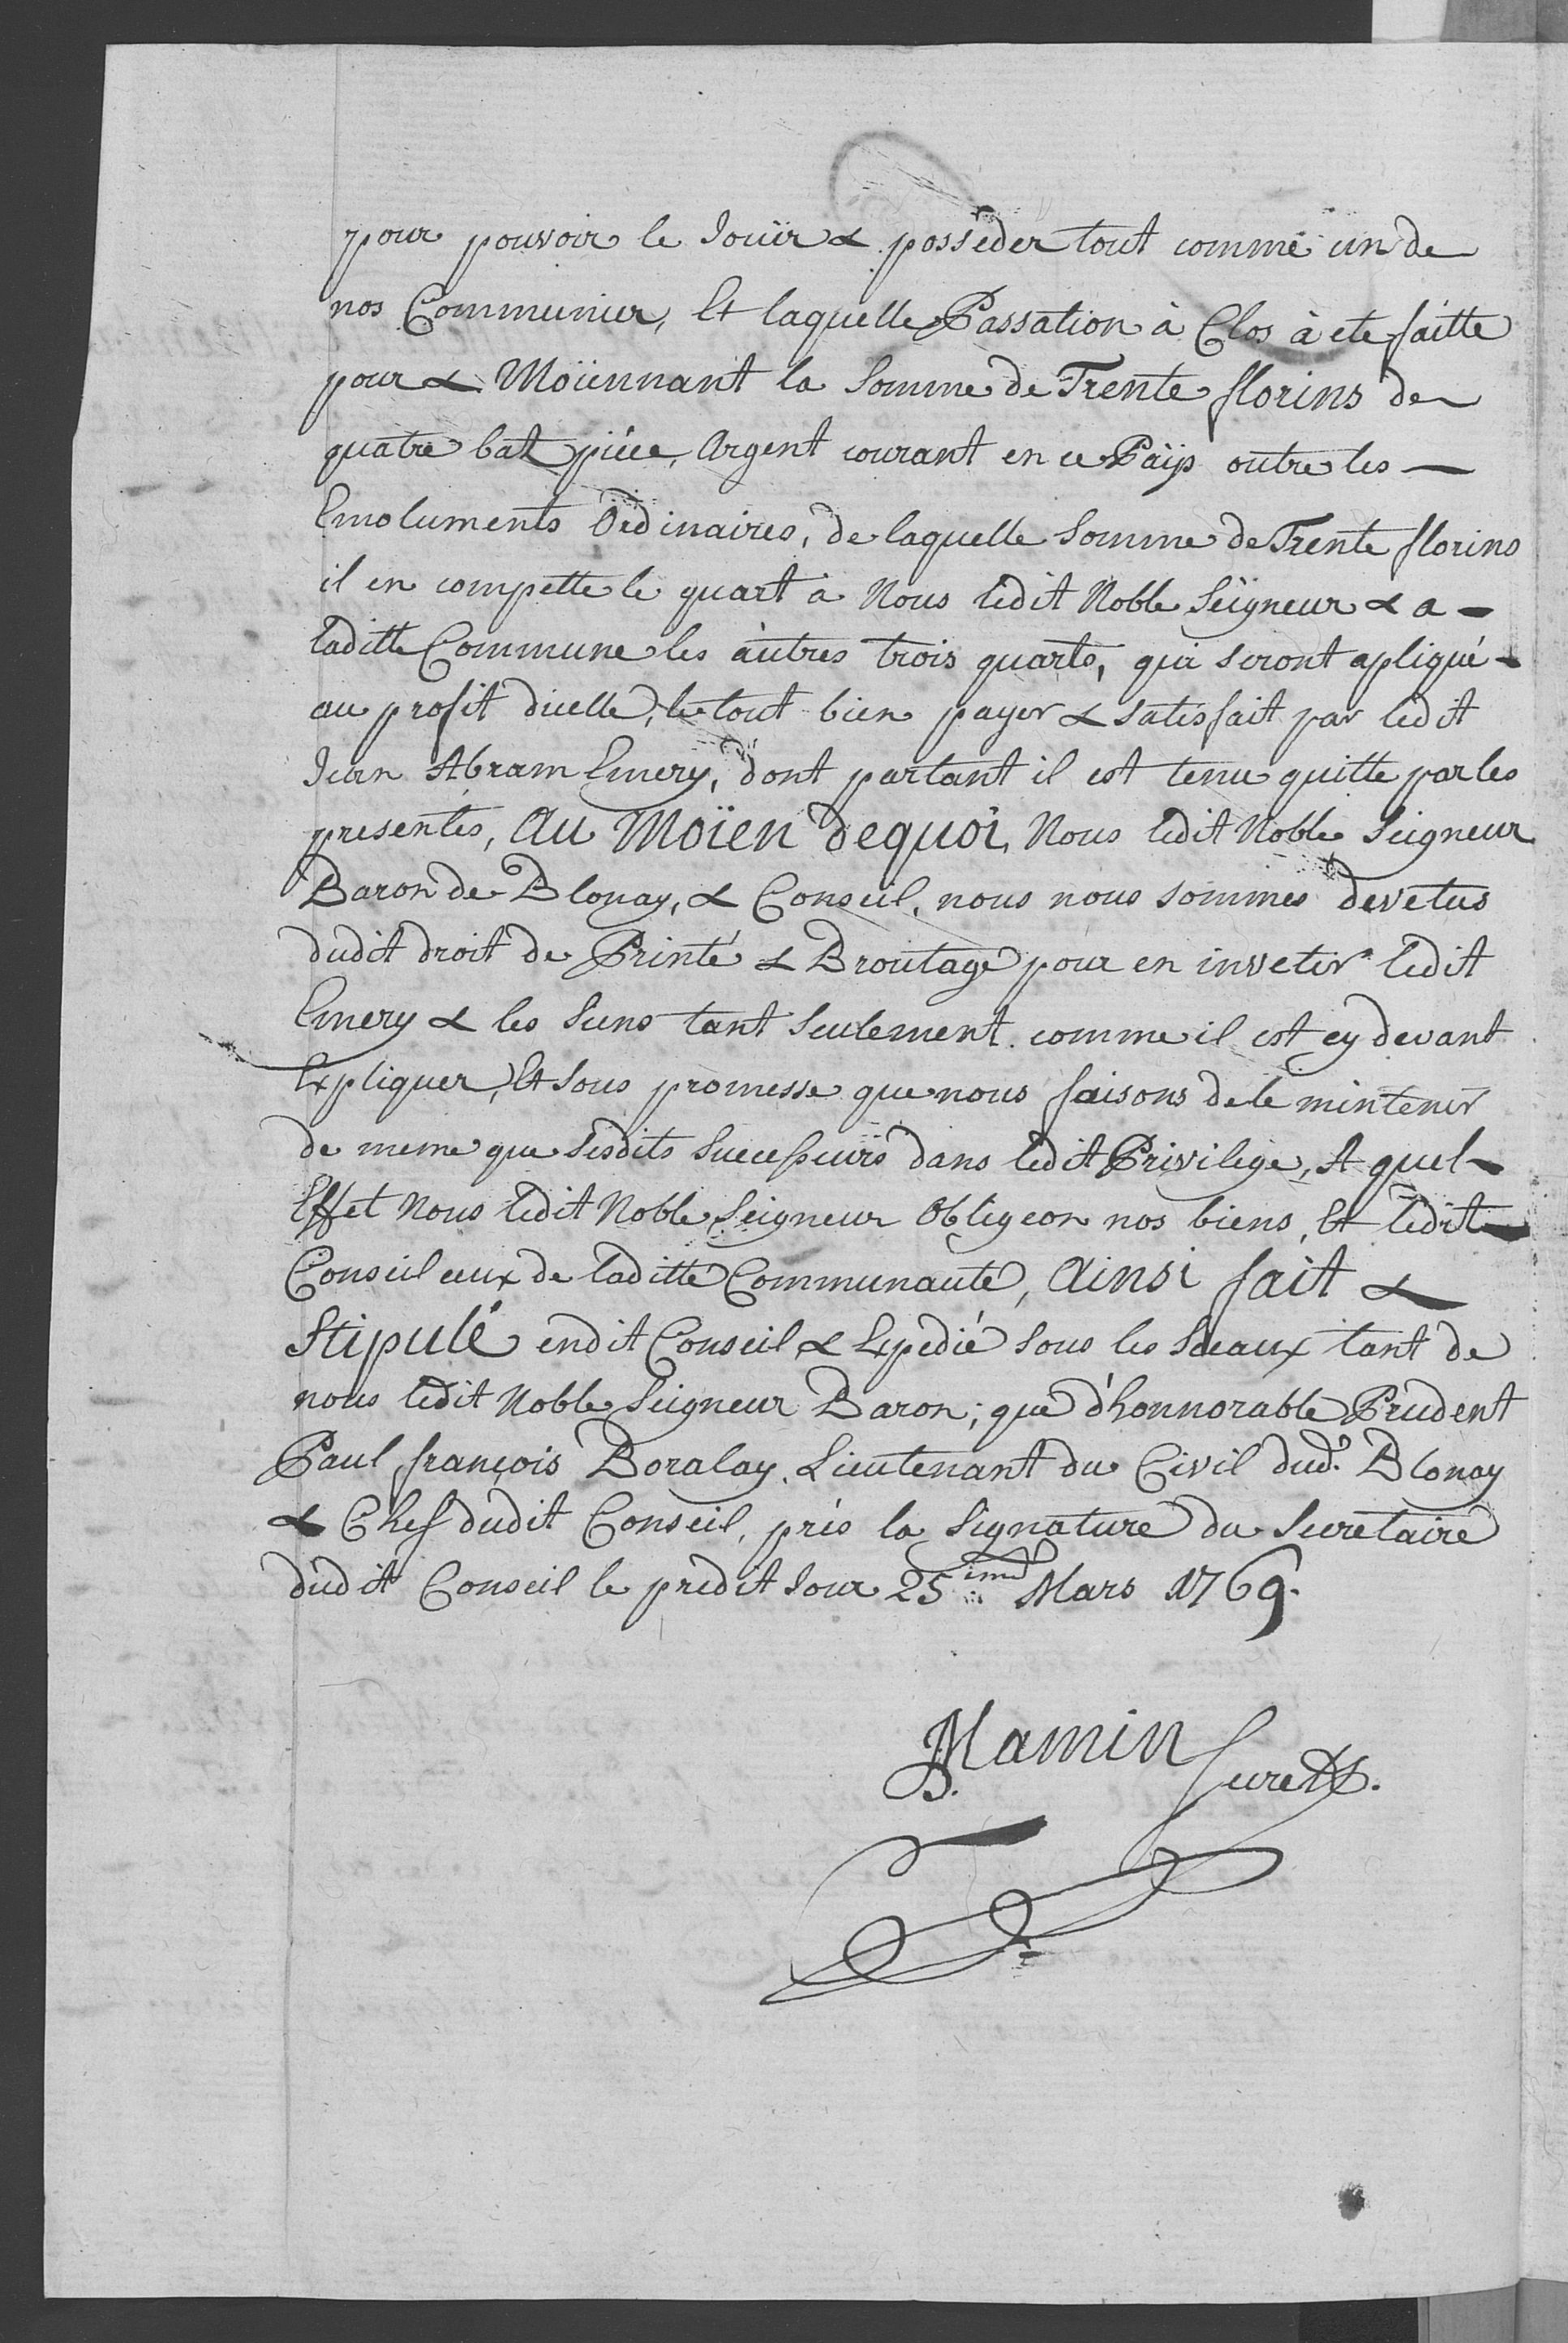 pour pouvoir le Jouïr & posséder tout comme un de
nos Communier, Et laquelle Passation à Clos à ete faitte
pour & Moïennant la Somme de Trente florins de
quatre batz piéce, Argent courant en ce Païs outre les
Emoluments Ordinaires, de laquelle Somme de Trente florins
il en compette le quart a Nous ledit Noble Seigneur & a
laditte Commune les autres trois quarts, qui seront apliqué
au profit dicelle, le tout bien payer & satisfait par ledit
Jean Abram Emery, dont partant il est tenu quitte par les
presentes, Au Moïen dequoi, Nous ledit Noble Seigneur
Baron de Blonay, & Conseil, nous nous sommes devetus
dudit droit de Printé & Broutage pour en invetir ledit
Emery & les Siens tant Seulement comme il est cy devant
Expliquer, Et sous promesse que nous faisons de le mintenir
de meme que sesdits Successeurs dans ledit Privilége, A quel
Effet Nous ledit Noble Seigneur Obligeon nos biens, Et ledit
Conseil ceux de laditte Communauté, Ainsi fait &
Stipulé endit Conseil & Expedié Sous les Sceaux tant de
nous ledit Noble Seigneur Baron; que d'honnorable Prudent
Paul françois Boralay, Lieutenant du Civil dud.t Blonay
& Chef dudit Conseil, prés la Signature du Secretaire
dudit Conseil le prédit Jour 25ime Mars 1769.
Mamin